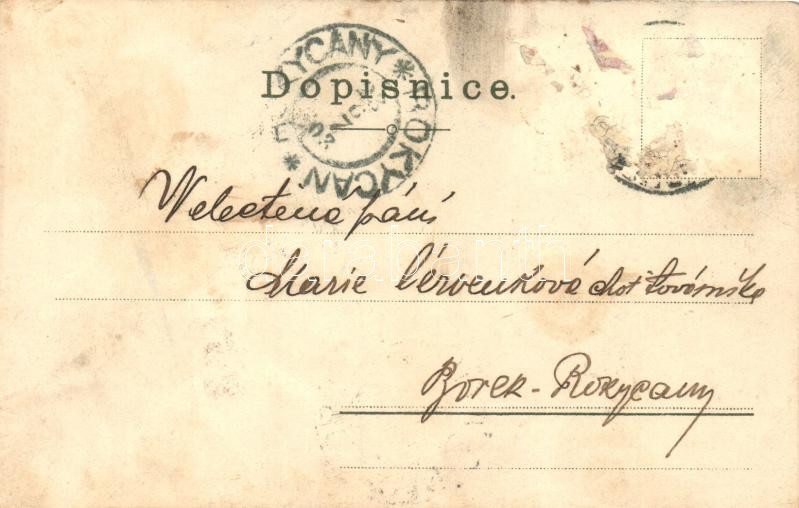 Dopisnice.
ROKYCANY * ROKYCAN *
Velectěná paní
Marie Červenková choť továrníka
Borek - Rokycany
darabanth